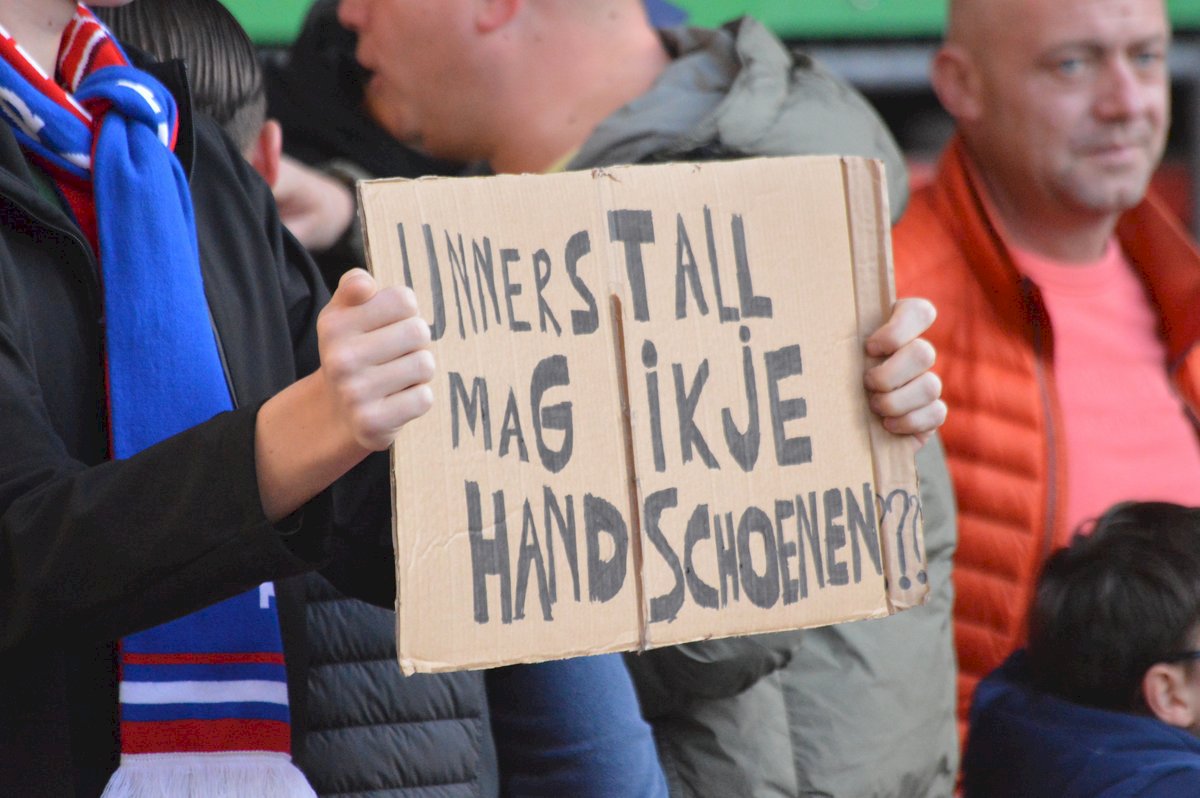 UNNERSTALL
MAG IK JE
HANDSCHOENEN??